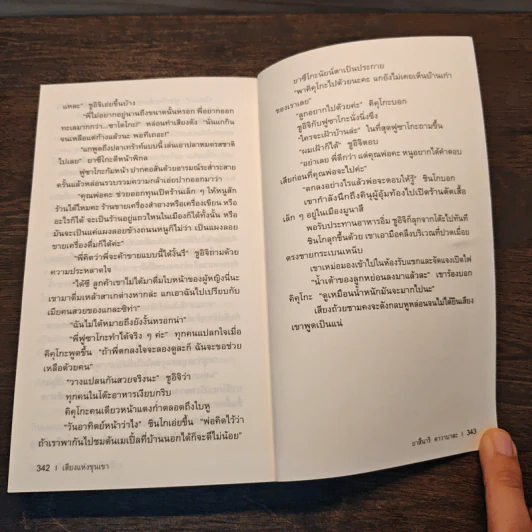 แหละ" ชูอิจิเอ่ยขึ้นบ้าง
"พี่ไม่อยากอยู่นานถึงขนาดนั้นหรอก พี่อยากออก
ทะเลมากกว่า...ซาโตโกะ!" หล่อนทำเสียงดัง "นั่นแกกิน
จนเหลือแต่ก้างแล้วนะ พอทีเถอะ!"
"แกพูดถึงปลาเทร้าท์แบบนี้ เห็นเอาปลาหมดรสชาติ
ไปเลย" ยาชิโกะตีหน้าพิกล
ฟูซาโกะก้มหน้า ปากคอสั่นด้วยอารมณ์ระส่ำระสาย
ครั้นแล้วหล่อนรวบรวมความกล้าเอ่ยปากออกมาว่า
"คุณพ่อคะ ช่วยออกทุนเปิดร้านเล็ก ๆ ให้หนูสัก
ร้านได้ไหมคะ ร้านขายเครื่องสำอางหรือเครื่องเขียน หรือ
อะไรก็ได้ จะเป็นร้านอยู่แถวไหนในเมืองก็ได้ทั้งนั้น หรือ
มันจะเป็นแค่แผงลอยข้างถนนหนูก็ไม่ว่า เป็นแผงลอย
ขายเครื่องดื่มก็ได้ค่ะ"
"พี่คิดว่าพี่จะค้าขายแบบนี้ได้งั้นรึ" ชูอิจิถามด้วย
ความประหลาดใจ
"ได้ซี ลูกค้าเขาไม่ได้มาดื่มใบหน้าของผู้หญิงนี่นะ
เขามาดื่มเหล้าสาเกต่างหากล่ะ แกเอาฉันไปเปรียบกับ
เมียคนสวยของแกละซิท่า"
"ฉันไม่ได้หมายถึงยังงั้นหรอกน่า"
"พี่ฟูซาโกะทำได้จริง ๆ ค่ะ" ทุกคนแปลกใจเมื่อ
คิคุโกะพูดขึ้น "ถ้าพี่ตกลงใจจะลองดูละก็ ฉันจะขอช่วย
เหลือด้วยคน"
"วางแปลนกันสวยจริงนะ" ชูอิจิว่า
ทุกคนในโต๊ะอาหารเงียบกริบ
คิคุโกะคนเดียวหน้าแดงก่ำตลอดถึงใบหู
"วันอาทิตย์หน้าว่าไง" ชินโกเอ่ยขึ้น "พ่อคิดไว้ว่า
ถ้าเราพากันไปชมต้นเมเปิ้ลที่บ้านนอกได้ก็จะดีไม่น้อย"
342 | เสียงแห่งขุนเขา
ยาชิโกะนัยน์ตาเป็นประกาย
"พาคิคุโกะไปด้วยนะคะ แกยังไม่เคยเห็นบ้านเก่า
ของเราเลย"
"ลูกอยากไปด้วยค่ะ" คิคุโกะบอก
ชูอิจิกับฟูซาโกะนั่งนิ่งขึง
"ใครจะเฝ้าบ้านล่ะ" ในที่สุดฟูซาโกะถามขึ้น
"ผมเฝ้าก็ได้" ชูอิจิตอบ
"อย่าเลย พี่ดีกว่า แต่คุณพ่อคะ หนูอยากได้คำตอบ
เสียก่อนที่คุณพ่อจะไปค่ะ"
"ตกลงอย่างไรแล้วพ่อจะตอบให้รู้" ชินโกบอก
เขากำลังนึกถึงคินุผู้อุ้มท้องไปเปิดร้านตัดเสื้อ
เล็ก ๆ อยู่ในเมืองนูมาสึ
พอรับประทานอาหารอิ่ม ชูอิจิก็ลุกจากโต๊ะไปทันที
ชินโกลุกขึ้นด้วย เขาเอามือคลึงบริเวณที่ปวดเมื่อย
ตรงชายกระเบนเหน็บ
เขาเหม่อมองเข้าไปในห้องรับแขกและจัดแจงเปิดไฟ
"น้ำเต้าของลูกหย่อนลงมาแล้วละ" เขาร้องบอก
คิคุโกะ "ดูเหมือนน้ำหนักมันจะมากไปนะ"
เสียงถ้วยชามคงจะดังกลบหูหล่อนจนไม่ได้ยินเสียง
เขาพูดเป็นแน่
ยาสึนาริ คาวาบาตะ | 343